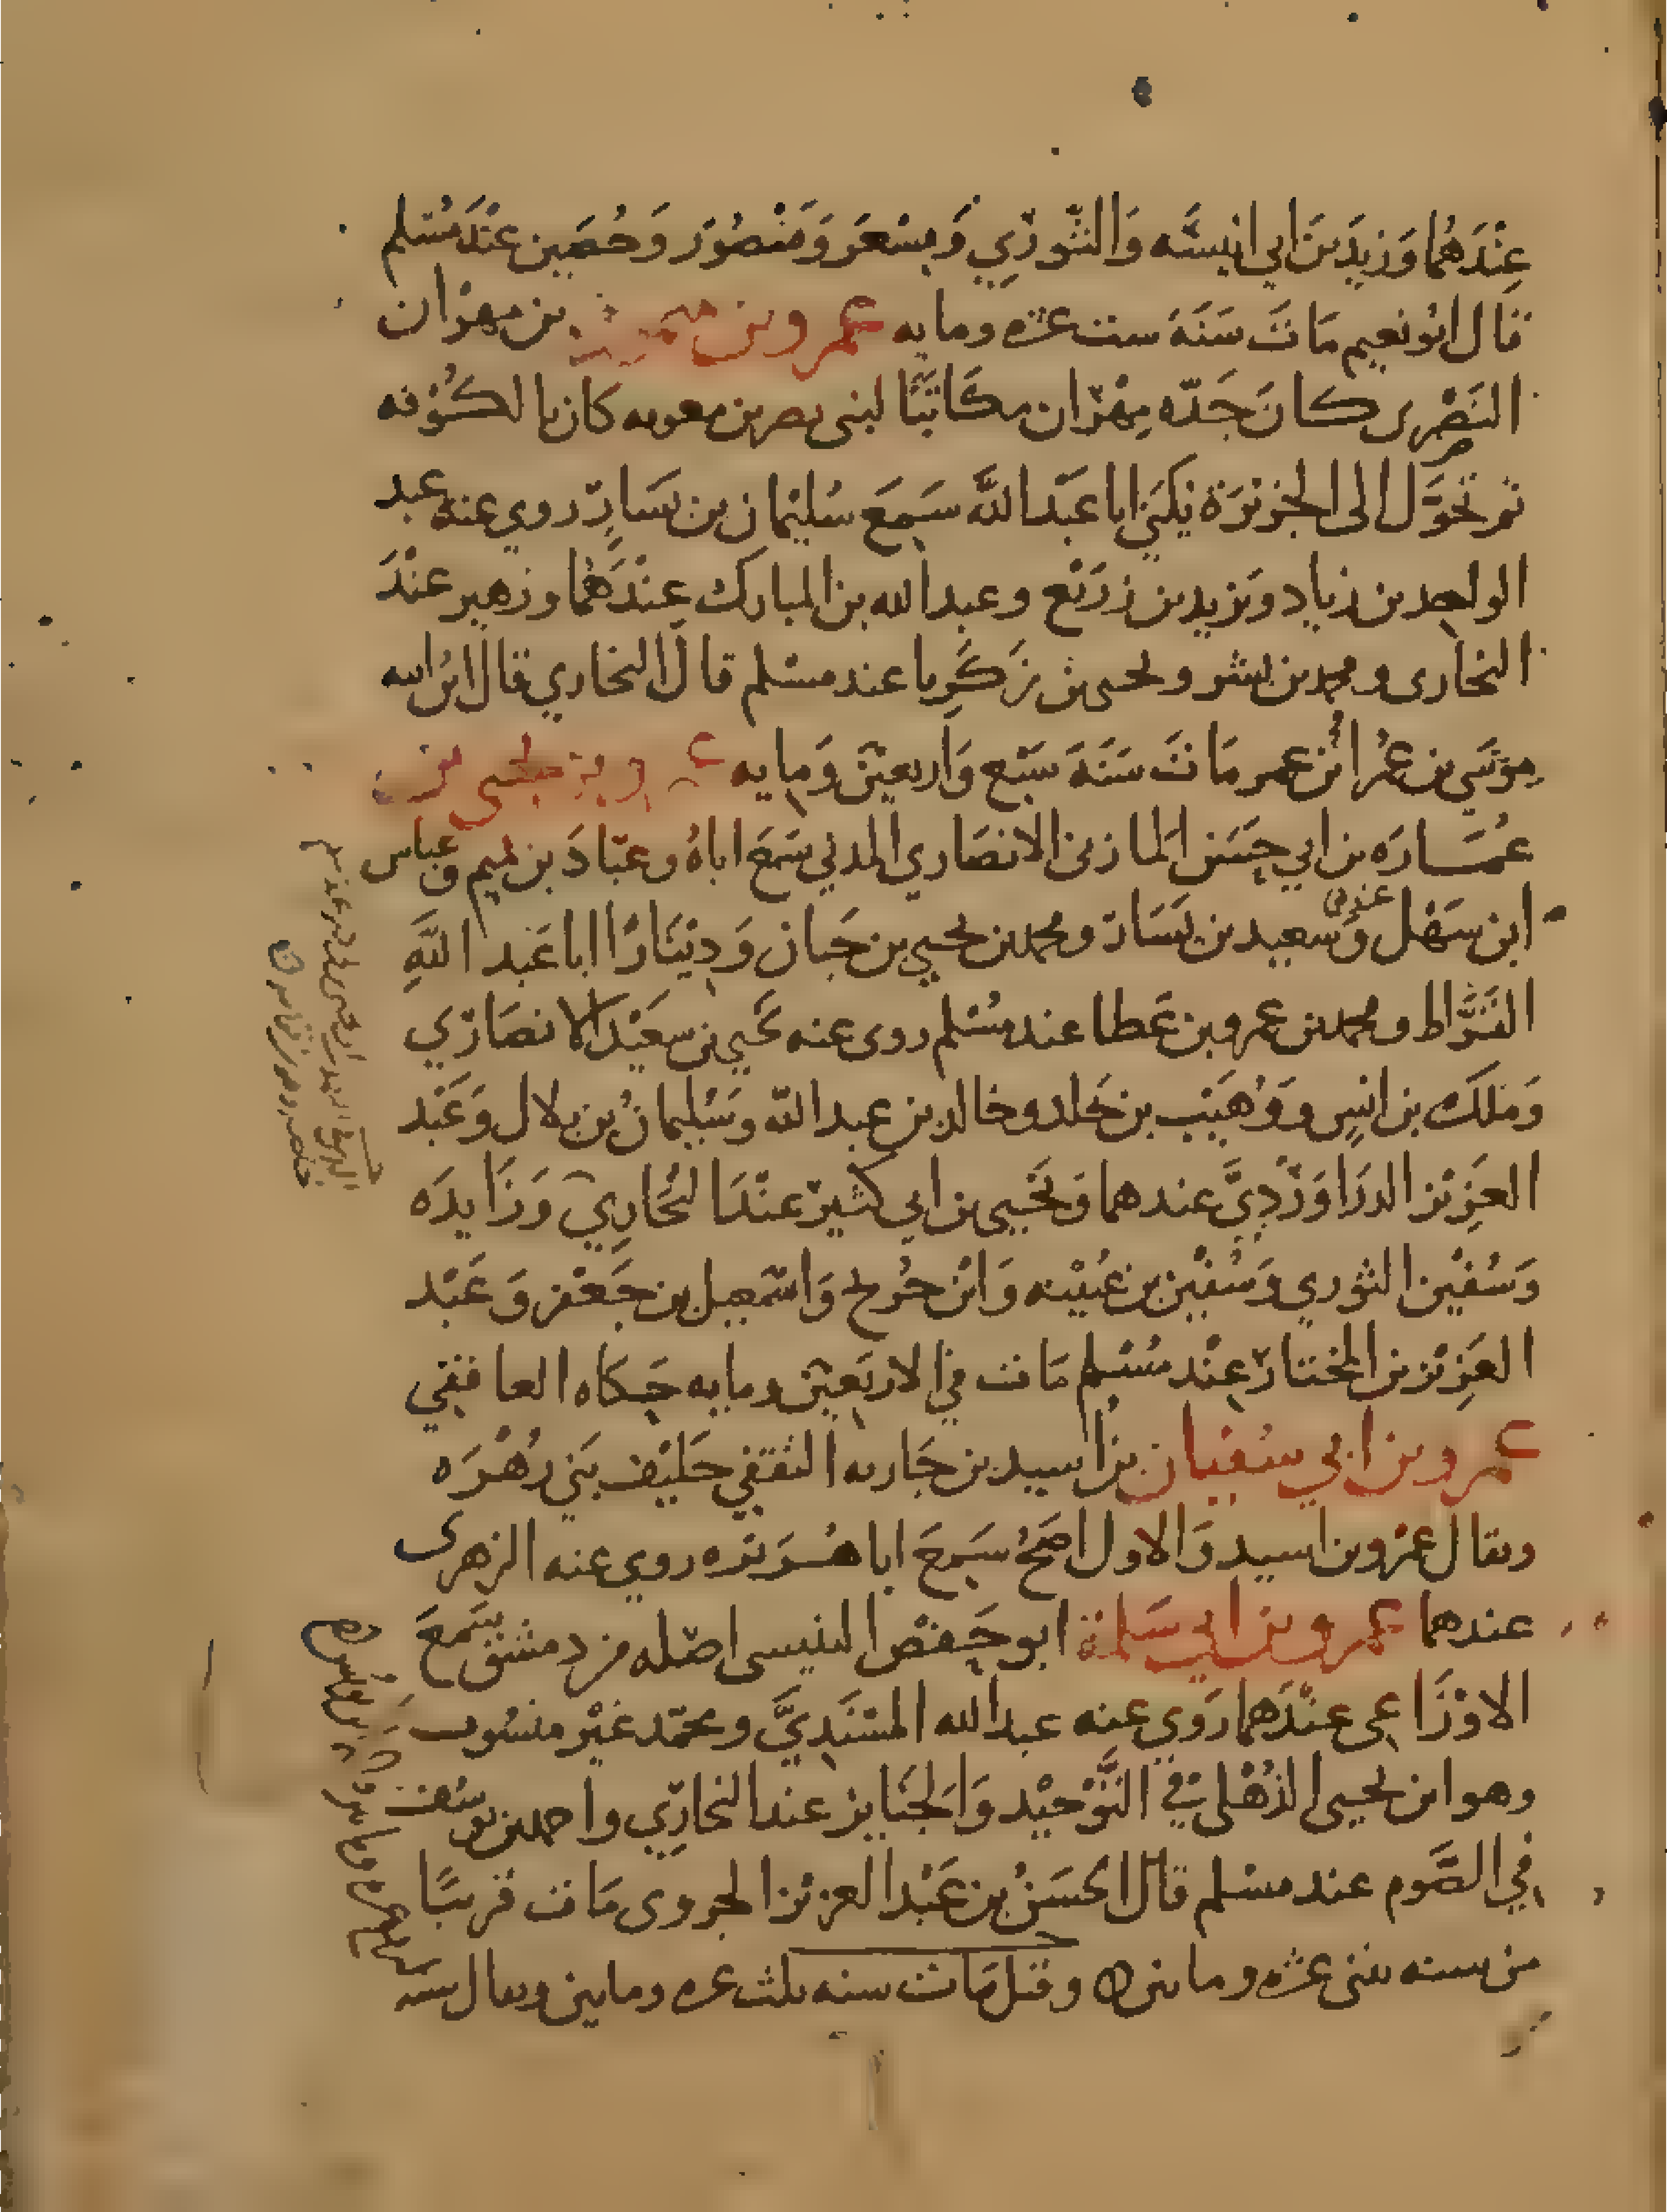 عِنْدَهُما وَزيدَ بن ابي انيسَه وَالثّورِي وَمِسْعَر وَمَنْصُوْر وَحُصَين عنْدَ مُسْلم
قال ابو نعيم مَاتَ سَنَة ست عشره ومايه عمرو بن ميمون بن مهرَان
النَصْرى كانَ جَدّه مِهْرَان مكَاتَبًا لبنى نصر بن معويه كان بالكُوْفه
ثم تحَوَّل الى الجزيْرَة يكنَى ابا عَبْد اللَّه سَمِعَ سُليْمان بن يَسَارٍ روي عنه عبد
الواحد بن زياد وَيزيد بن زرَيْع وعبد الله بن المبارك عِنْدَهُما وزهير عنْدَ
البخارى ومحمد بن بشر ويحيى بن زكَرِيا عند مسْلم قال البخاري قال ابْن ابنه
موسَي بن عمر ابْن عمر مَاتَ سَنَة سَبْع وَاربعيْنَ وَمايه عمرو بن يحيى بن
عُمَــارَه بن ابي حسَن المازنى الانصَاري المدني سَمَعَ اباهُ وعبّادَ بن تميم وعباس
ابن سَهْل وَسعيد بن يَسَار ومحمد بن يحيي بن حَبان وَدِيْنَارًا ابا عَبْد اللَّهِ
القَرَّاظ ومحمد بن عمرو بن عَطا عند مسْلم روى عنه يَحيي بن سعَيْد الانصَارِي
وَملَك بن انسٍ ووُهَيْب بن خَالد وخالد بن عبد اللّه وسُليمانُ بن بلال وَعَبْد
العَزِيْز الدرَاوَرْدِيَّ عندهما وَيَحْيى بن ابي كثير عنْدَ البُخَارِي وَزَايدَه
وَسُفيْن الثوري وَسُفيْن بن عُيَيْنه وَابْن جُرَيج وَاسْمعيل بن جَعْفر وَعَبْد
العَزِيْز بن المختار عِنْد مسْلم مَات في الاربَعيْن ومايه حكاه العافقي
عمرو بن ابي سفيان بن اسيد بن جَاريه الثقفي حَليْف بَني زُهْرَه
ويقال عمرو بن اسيد وَالاول اصَحُ سَمِعَ ابا هُــرَيْرَه روي عنه الزهرى
عندهما عمرو بن ابي سَلمة ابو حَفْصْ التنيسى اصْله من دمشق سَمَعَ
الاوْزَاعى عنْدَهما رَوي عنه عبد الله المسْنَدِيَّ ومحمّد غيْر منسُوب
وهو ابن يحيى الذُهْلى في التَّوْحيْد وَالجَنَايز عند البخارِي واحمد بن يوسُف
في الصَّوم عند مسْلم قال الحَسَنُ بن عَبْد العزيْز الجروى مَات قريبًا
من سنه ثنتى عشره ومايتين وقيل مَات سنه ثلث عشره ومايتين ويقال سنه